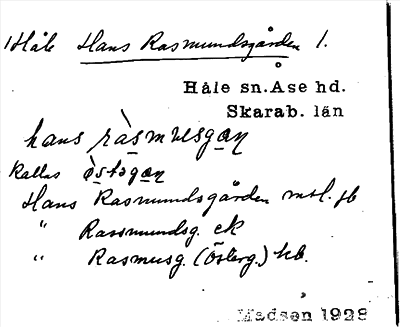 1 Håle Hans Rasmundsgården 1.
Håle sn. Åse hd.
Skarab. län
hans ràsmusgaɳ
kallas òstəgaɳ
Hans Rasmundsgården mtl. jb
" Rasmundsg. ek
" Rasmusg. (Österg.) kb.
Madsen 1928